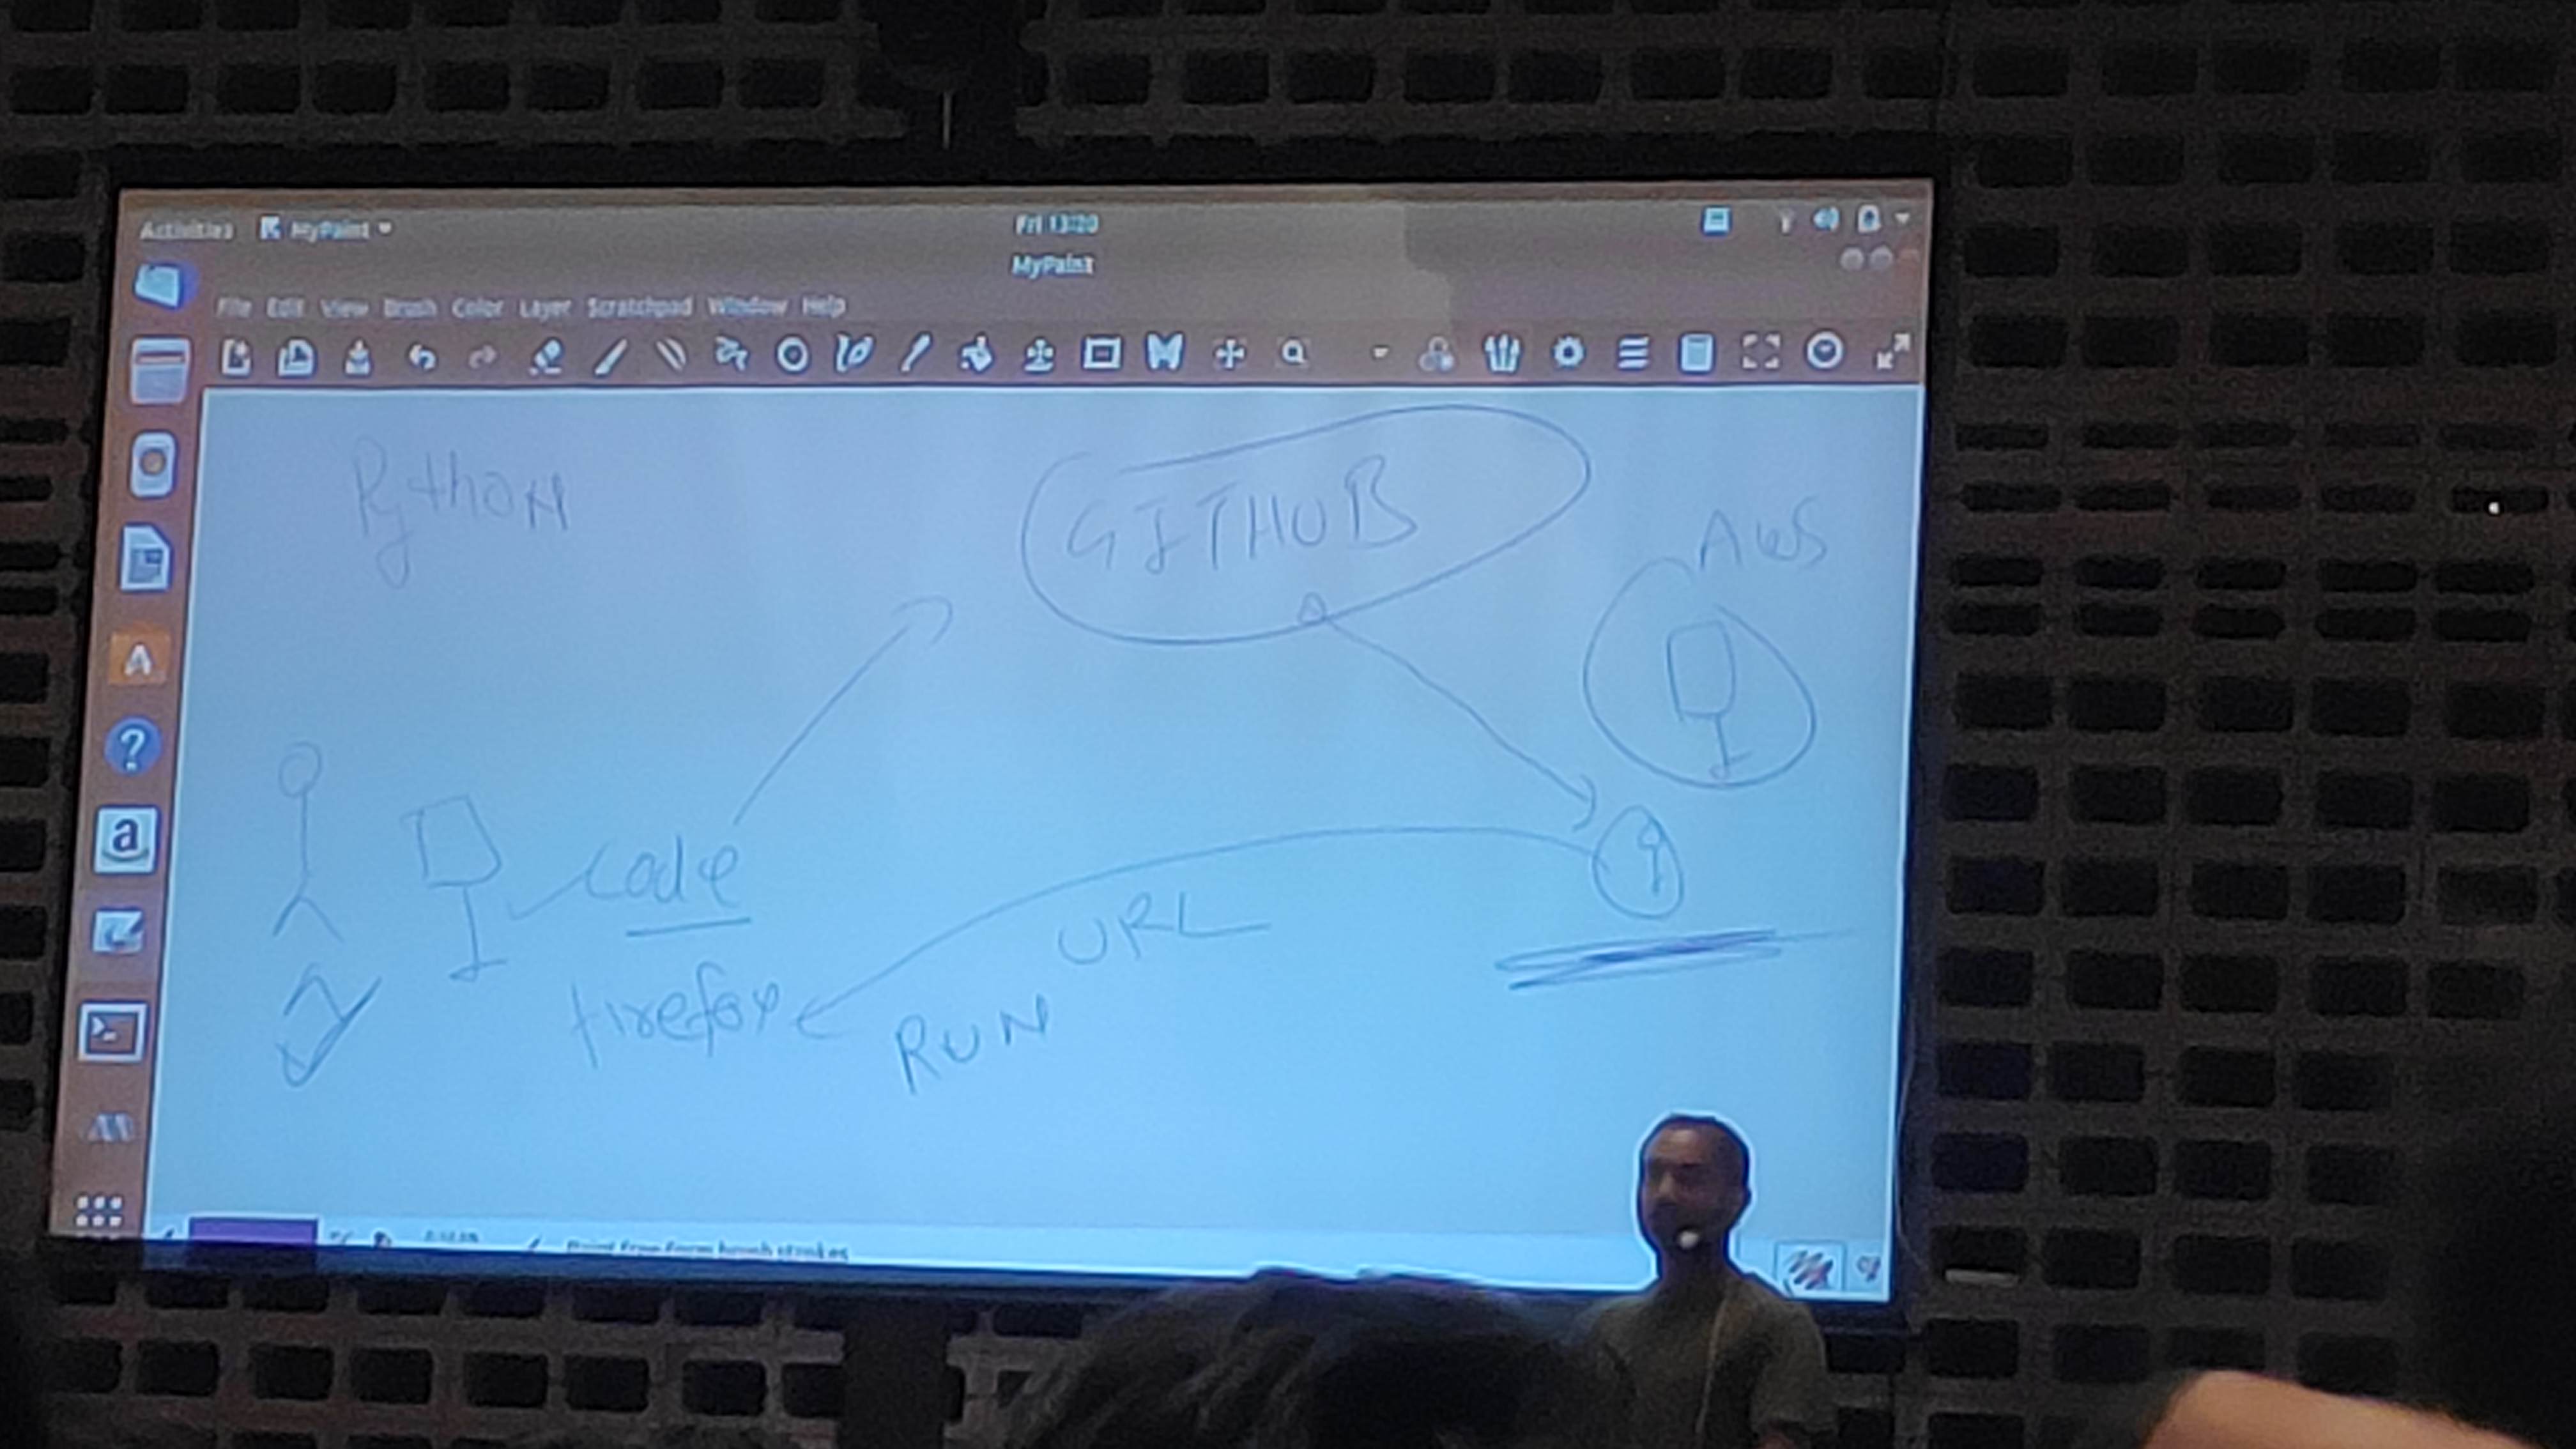 Activities MyPaint
Fri 13:20
MyPaint
File Edit View Brush Color Layer Scratchpad Window Help
Python
GITHUB
AWS
code
URL
firefox
RUN
A
?
a
Paint free-form brush strokes